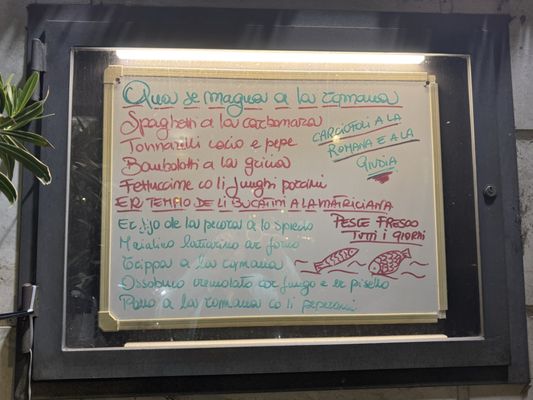 Qua se magna a la romana
Spaghetti a la carbonara
Tonnarelli cacio e pepe
Bombolotti a la gricia
Fettuccine co li funghi porcini
CARCIOFOLI A LA
ROMANA E A LA
GIUDIA
ER TEMPIO DE LI BUCATINI A LA MATRICIANA
Er fijo de la pecora a lo spiedo
Maialino lattarino ar forno
Trippa a la romana
Ossobuco tremolato cor fungo e er pisello
Pollo a la romana co li peperoni
PESCE FRESCO
TUTTI I GIORNI